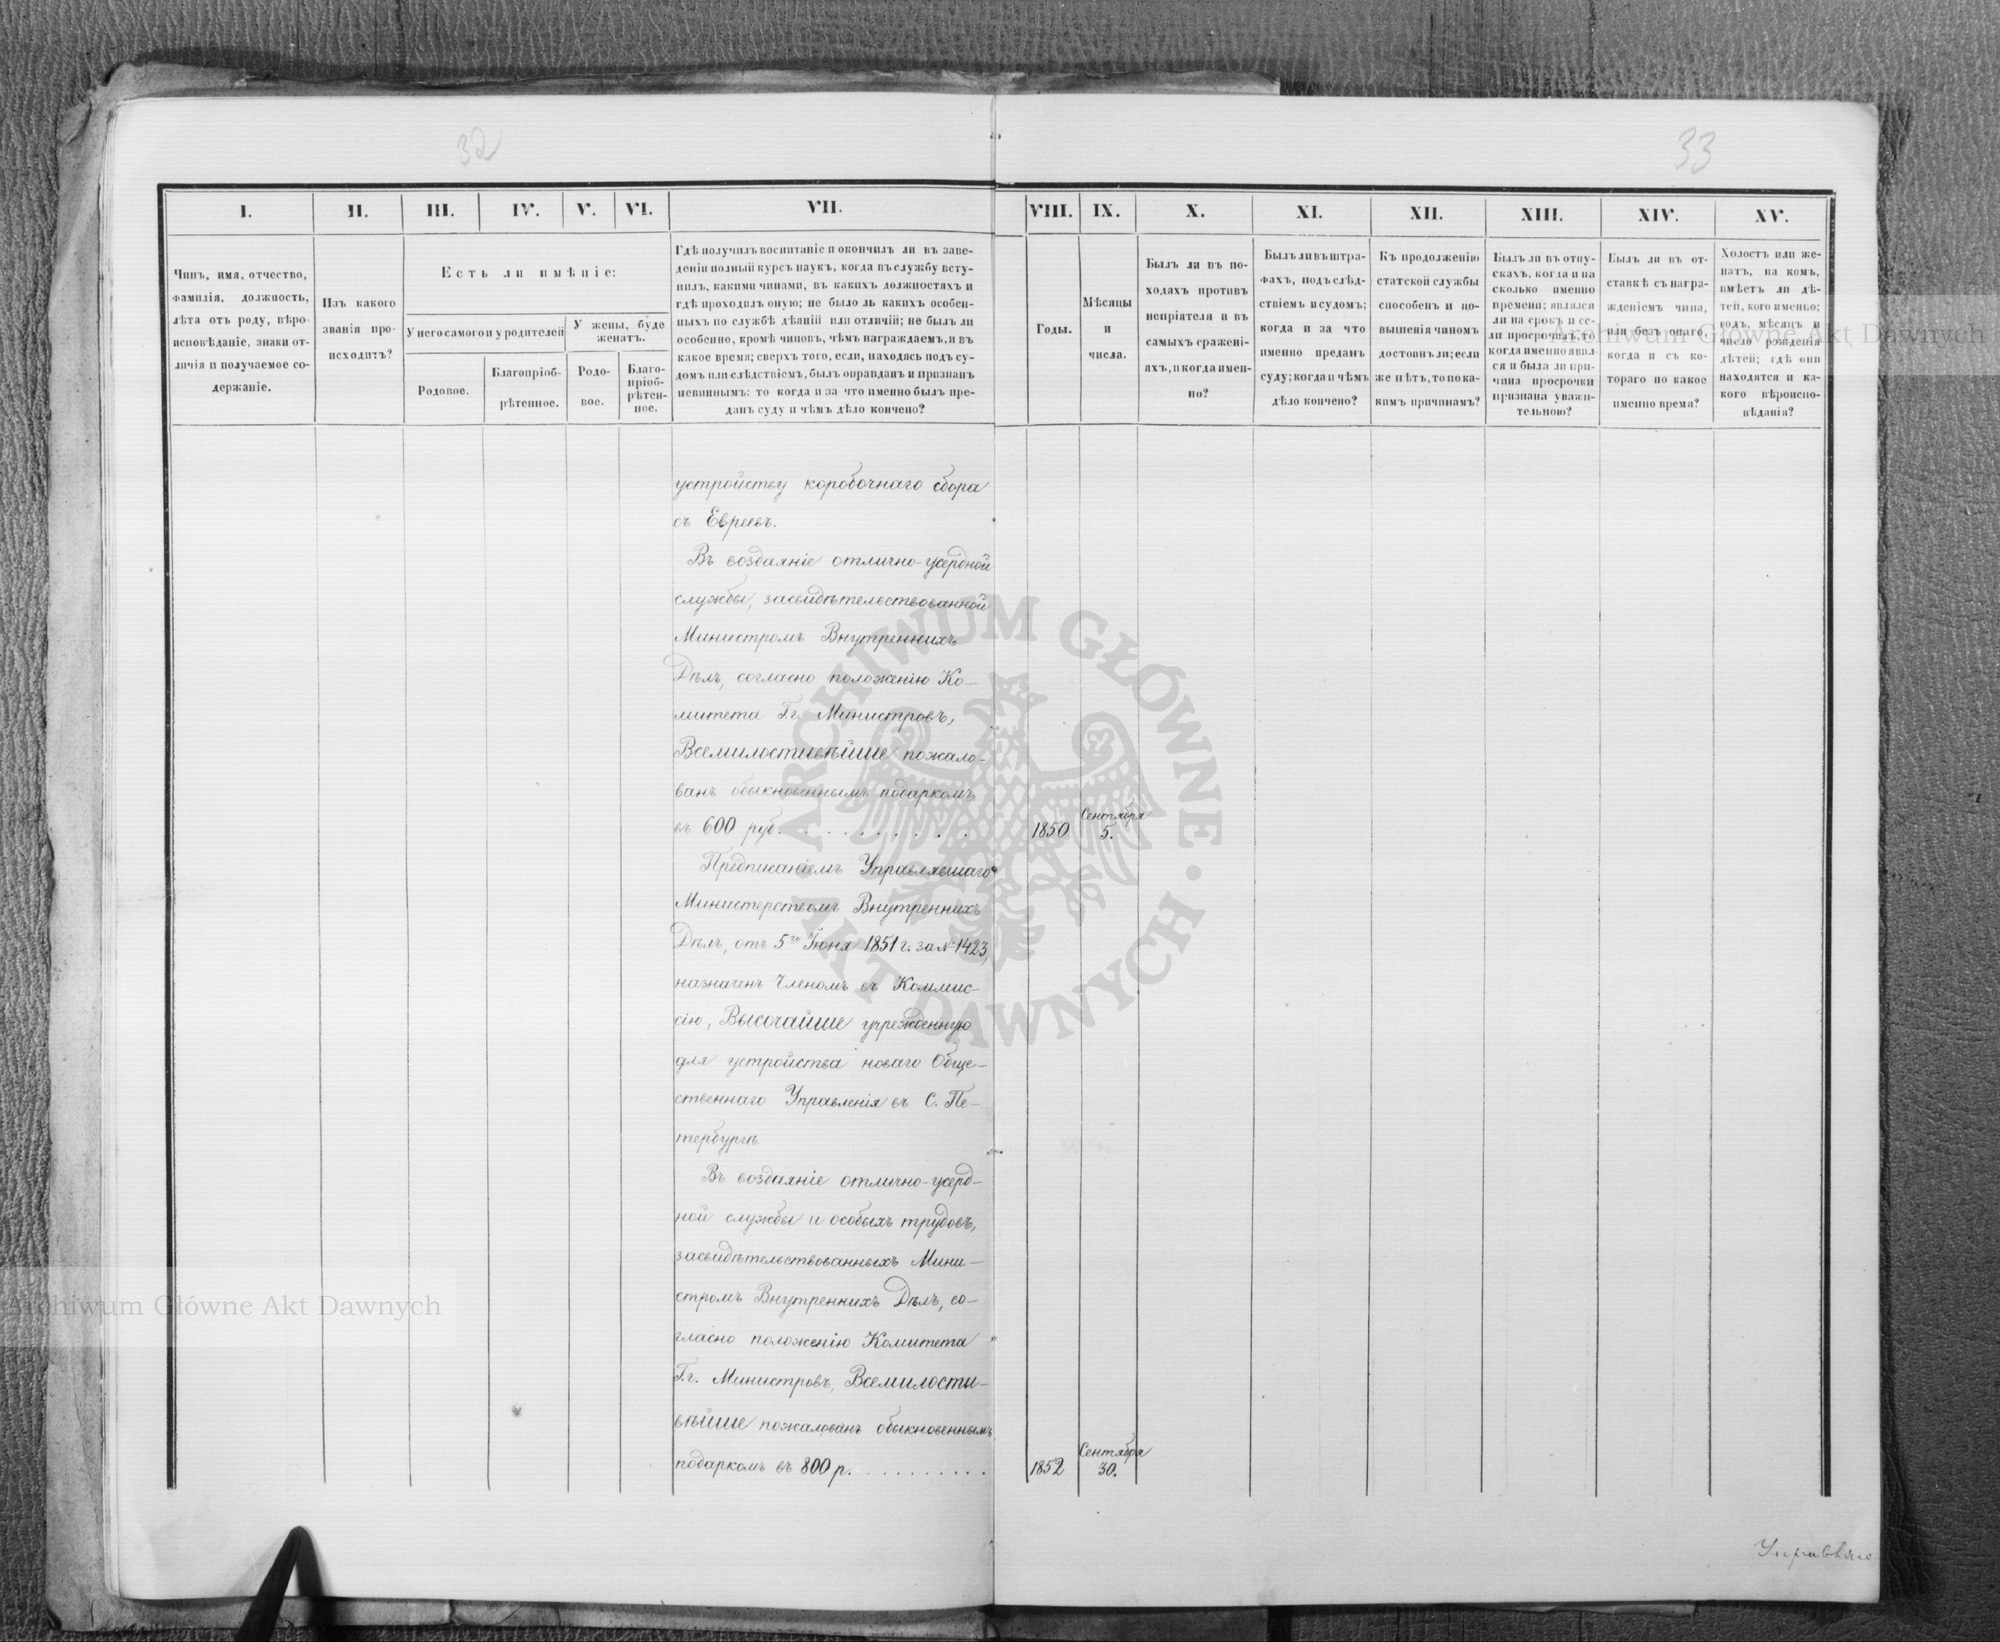 32
33
I.
II.
III.
IV.
V.
VI.
VII.
VIII.
IX.
X.
XI.
XII.
XIII.
XIV.
XV.
Чинъ, имя, отчество,
фамилія, должность,
лѣта отъ роду, вѣро-
исповѣданіе, знаки от-
личія и получаемое со-
держаніе.
Изъ какого
званія про-
исходитъ?
Есть ли имѣніе:
У него самого и у родителей
У жены, буде
женатъ.
Родовое.
Благопріоб-
рѣтенное.
Родо-
вое.
Благо-
пріоб-
рѣтен-
ное.
Гдѣ получилъ воспитаніе и окончилъ ли въ заве-
деніи полный курсъ наукъ, когда въ службу всту-
пилъ, какими чинами, въ какихъ должностяхъ и
гдѣ проходилъ оную; не было ль какихъ особен-
ныхъ по службѣ дѣяній или отличій; не былъ ли
особенно, кромѣ чиновъ, чѣмъ награждаемъ, и въ
какое время; сверхъ того, если, находясь подъ су-
домъ или слѣдствіемъ, былъ оправданъ и признанъ
невиннымъ: то когда и за что именно былъ пре-
данъ суду и чѣмъ дѣло кончено?
Годы.
Мѣсяцы
и
числа.
Былъ ли въ по-
ходахъ противъ
непріятеля и въ
самыхъ сражені-
яхъ, и когда имен-
но?
Былъ ли въ штра-
фахъ, подъ слѣд-
ствіемъ и судомъ;
когда и за что
именно преданъ
суду; когда и чѣмъ
дѣло кончено?
Къ продолженію
статской службы
способенъ и по-
вышенія чиномъ
достоинъ ли; если
же нѣтъ, то по ка-
кимъ причинамъ?
Былъ ли въ отпу-
скахъ, когда и на
сколько именно
времени; являлся
ли на срокъ и ес-
ли просрочилъ, то
когда именно явил-
ся и была ли при-
чина просрочки
признана уважи-
тельною?
Былъ ли въ от-
ставкѣ съ награ-
жденіемъ чина,
или безъ онаго,
когда и съ ко-
тораго по какое
именно время?
Холостъ или же-
натъ, на комъ,
имѣетъ ли дѣ-
тей, кого именно;
годъ, мѣсяцъ и
число рожденія
дѣтей; гдѣ они
находятся и ка-
кого вѣроиспо-
вѣданія?
устройству коробочнаго сбора
съ Евреевъ.
Въ воздаяніе отлично-усердной
службы, засвидѣтельствованной
Министромъ Внутреннихъ
Дѣлъ, согласно положенію Ко-
митета Г.г. Министровъ,
Всемилостивѣйше пожало-
ванъ обыкновеннымъ подаркомъ
въ 600 руб. . . . . . . . . .
1850
Сентября
5.
Предписаніемъ Управлявшаго
Министерствомъ Внутреннихъ
Дѣлъ, отъ 5го Іюня 1851 г. за № 1423,
назначенъ Членомъ въ Коммис-
сію, Высочайше учрежденную
для устройства новаго Обще-
ственнаго Управленія въ С. Пе-
тербургѣ.
Въ воздаяніе отлично-усерд-
ной службы и особыхъ трудовъ,
засвидѣтельствованныхъ Мини-
стромъ Внутреннихъ Дѣлъ, со-
гласно положенію Комитета
Г.г. Министровъ, Всемилости-
вѣйше пожалованъ обыкновеннымъ
подаркомъ въ 800 р. . . . . . . . . .
1852
Сентября
30.
Archiwum Główne Akt Dawnych
Archiwum Główne Akt Dawnych
ARCHIWUM GŁÓWNE · AKT DAWNYCH ·